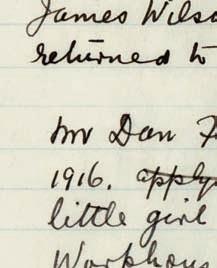 James Wilso
returned to
Mr Dan F
1916. apply
little girl
Workhous